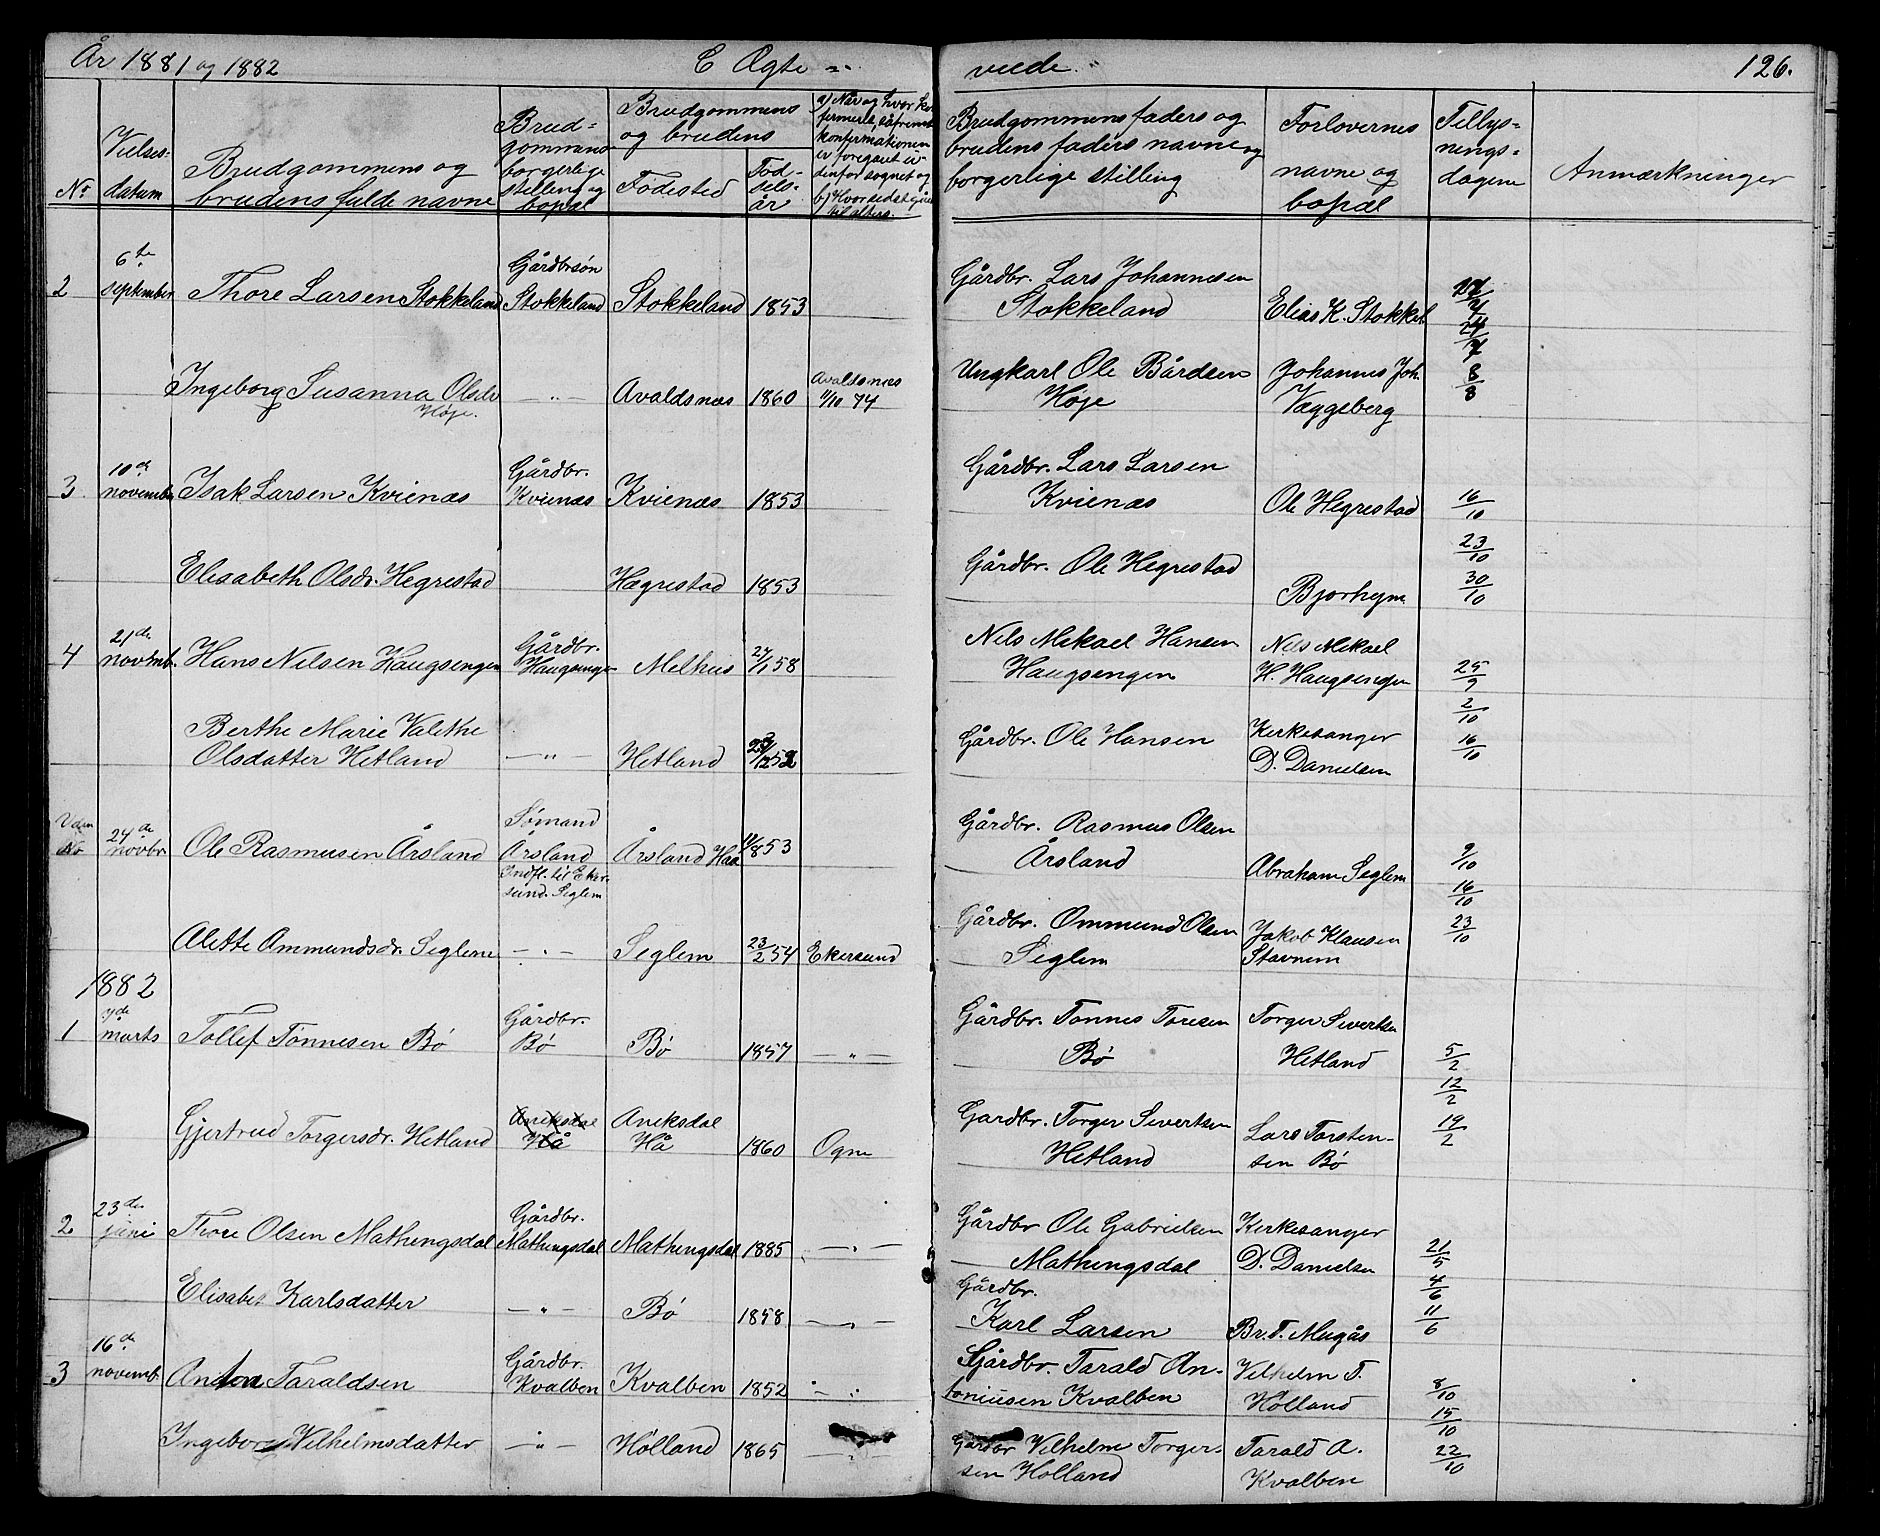 År 1881 og 1882
C Ægte =
viede.
126.
Nr.
Vielses-
datum
Brudgommens og
brudens fulde navne
Brud-
gommens
borgerlige
stilling og
bopæl
Brudgommens
og brudens
Födested
Föd-
sels-
år
a) Når og hvor kon
firmeret, såfremt
konfirmationen
er foregået u-
denfor sognet og
b) Hvor sidst gået
til alters.
Brudgommens faders og
brudens faders navne og
borgerlige stilling
Forlovernes
navne og
bopæl
Tillys-
nings-
dagene
Anmærkninger
2
6te
september
Thore Larsen Stokkeland
Gårdbrsön
Stokkeland
Stokkeland
1853
Gårdbr. Lars Johannesen
Stokkeland
Elias K. Stokkel
24/7
Ingeborg Susanna Olsdr
Höje.
— „ —
Avaldsnæs
1860
Avaldsnæs
1/10 74
Ungkarl Ole Bårdsen
Höje
Johannes Joh.
Væggsberg
8/8
3
10de
novembr
Isak Larsen Kvienæs
Gårdbr.
Kvienæs
Kvienæs
1853
Gårdbr. Lars Larsen
Kvienæs
Ole Hegrestad
16/10
Elisabeth Olsdr. Hegrestad
Hægrestad
1853
Gårdbr. Ole Hegrestad
Bjorhejm
23/10
30/10
4
21de
novemb.
Hans Nilsen Haugsengen
Gårdbr.
Haugsenge
Melhus
24/1 58
Nils Mikael Hansen
Haugsengen
Nils Mikael
H. Haugsengen
25/9
Berthe Marie Valethe
Olsdatter Hetland
— „ —
Hetland
Gårdbr. Ole Hansen
Kirkesanger
D. Danielsen
2/10
16/10
Uden
No
24de
novbr
Ole Rasmusen Årsland
Sömand
Årsland
Indfl. til Eker-
sund. Seglem
Årsland Haa
1853
Gårdbr. Rasmus Olsen
Årsland
Abraham Seglem
9/10
16/10
Alette Ommundsdr. Seglem
— „ —
Seglem
23/2 54
Ekersund
Gårdbr. Ommund Olsen
Seglem
Jakob Klausen
Stavnem
23/10
1882
1
7de
marts
Tollef Tönnesen Bö
Gårdbr.
Bö
Bö
1857
— „ —
Gårdbr. Tönnes Toresen
Bö
Torger Sivertsen
Hetland
5/2
12/2
Gjertrud Torgersdr. Hetland
Aniksdal
Hå
Aniksdal
Hå
1860
Ogne
Gardbr. Torger Sivertsen
Hetland
Lars Torsten-
sen Bö
19/2
2
23de
juni
Thore Olsen Mathingsdal
Gårdbr.
Mathingsdal
Mathingsdal
1885
— „ —
Gårdbr Ole Gabrielsen
Mathingsdal
Kirkesanger
D. Danielsen
21/5
Elisabet Karlsdatter
— „ —
Bö
1858
— „ —
Gårdbr.
Karl Larsen
Br. T. Mugås
4/6
11/6
3
16de
novemb.
Anton Taraldsen
Gårdbr.
Kvalben
Kvalben
1852
— „
Gårdbr. Tarald An-
toniusen Kvalben
Vilhelm T.
Holland
8/10
15/10
Ingeborg Vilhelmsdatter
— „ —
Holland
1865
— „ —
Gårdbr Vilhelm Torger-
sen Holland
Tarald A.
Kvalben
22/10